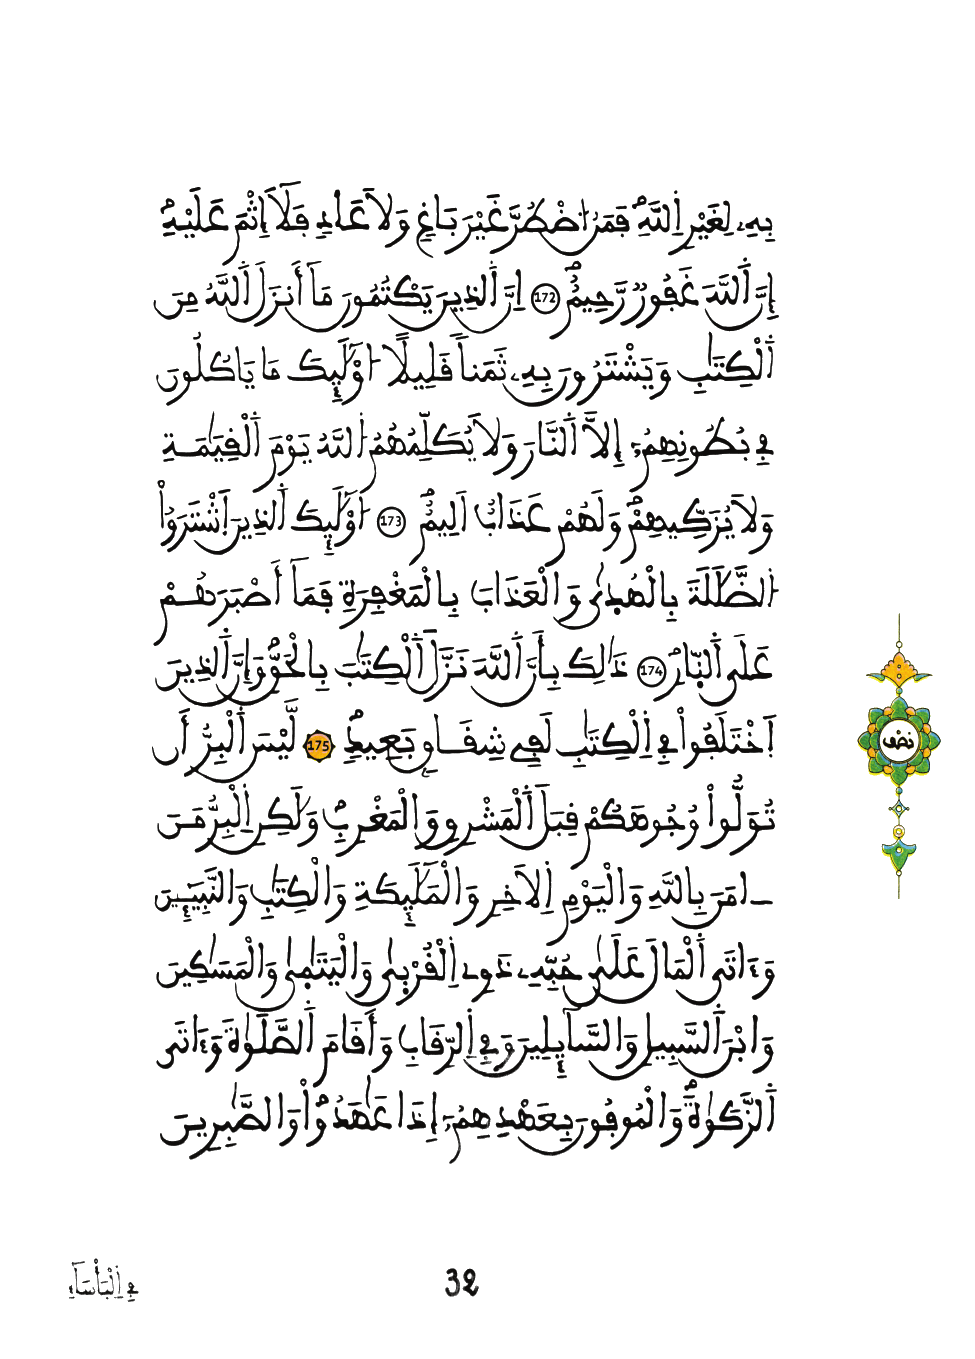 بِهِۦ لِغَيْرِ اِ۬للَّهِۖ فَمَنُ اُ۟ضْطُرَّ غَيْرَ بَاغٖ وَلَا عَادٖ فَلَآ إِثْمَ عَلَيْهِۖ
إِنَّ اَ۬للَّهَ غَفُورٞ رَّحِيمٌۖ 172 اِنَّ اَ۬لذِينَ يَكْتُمُونَ مَآ أَنزَلَ اَ۬للَّهُ مِنَ
اَ۬لْكِتَٰبِ وَيَشْتَرُونَ بِهِۦ ثَمَناٗ قَلِيلًا اُوْلَٰٓئِكَ مَا يَاكُلُونَ
فِے بُطُونِهِمُۥٓ إِلَّا اَ۬لنَّارَ وَلَا يُكَلِّمُهُمُ اُ۬للَّهُ يَوْمَ اَ۬لْقِيَٰمَةِ
وَلَا يُزَكِّيهِمْۖ وَلَهُمْ عَذَابٌ اَلِيمٌۖ 173 اُوْلَٰٓئِكَ اَ۬لذِينَ اَ۪شْتَرَوُاْ
اُ۬لضَّلَٰلَةَ بِالْهُد۪ىٰ وَالْعَذَابَ بِالْمَغْفِرَةِۖ فَمَآ أَصْبَرَهُمْ
عَلَى اَ۬لنّ۪ارِۖ 174 ذَٰلِكَ بِأَنَّ اَ۬للَّهَ نَزَّلَ اَ۬لْكِتَٰبَ بِالْحَقِّۖ وَإِنَّ اَ۬لذِينَ
اَ۪خْتَلَفُواْ فِے اِ۬لْكِتَٰبِ لَفِے شِقَاقِۢ بَعِيدٖۖ 175 لَّيْسَ اَ۬لْبِرُّ أَن
تُوَلُّواْ وُجُوهَكُمْ قِبَلَ اَ۬لْمَشْرِقِ وَالْمَغْرِبِۖ وَلَٰكِنِ اِ۬لْبِرُّ مَنَ
ـ اٰمَنَ بِاللَّهِ وَالْيَوْمِ اِ۬لَاخِرِ وَالْمَلَٰٓئِكَةِ وَالْكِتَٰبِ وَالنَّبِيٓـِٕينَ
وَءَاتَى اَ۬لْمَالَ عَلَىٰ حُبِّهِۦ ذَوِے اِ۬لْقُرْب۪ىٰ وَالْيَتَٰم۪ىٰ وَالْمَسَٰكِينَ
وَابْنَ اَ۬لسَّبِيلِ وَالسَّآئِلِينَ وَفِے اِ۬لرِّقَابِ وَأَقَامَ اَ۬لصَّلَوٰةَ وَءَاتَى
اَ۬لزَّكَوٰةَۖ وَالْمُوفُونَ بِعَهْدِهِمُۥٓ إِذَا عَٰهَدُواْۖ وَالصَّٰبِرِينَ
نصف
فِے اِ۬لْبَأْسَآءِ
32